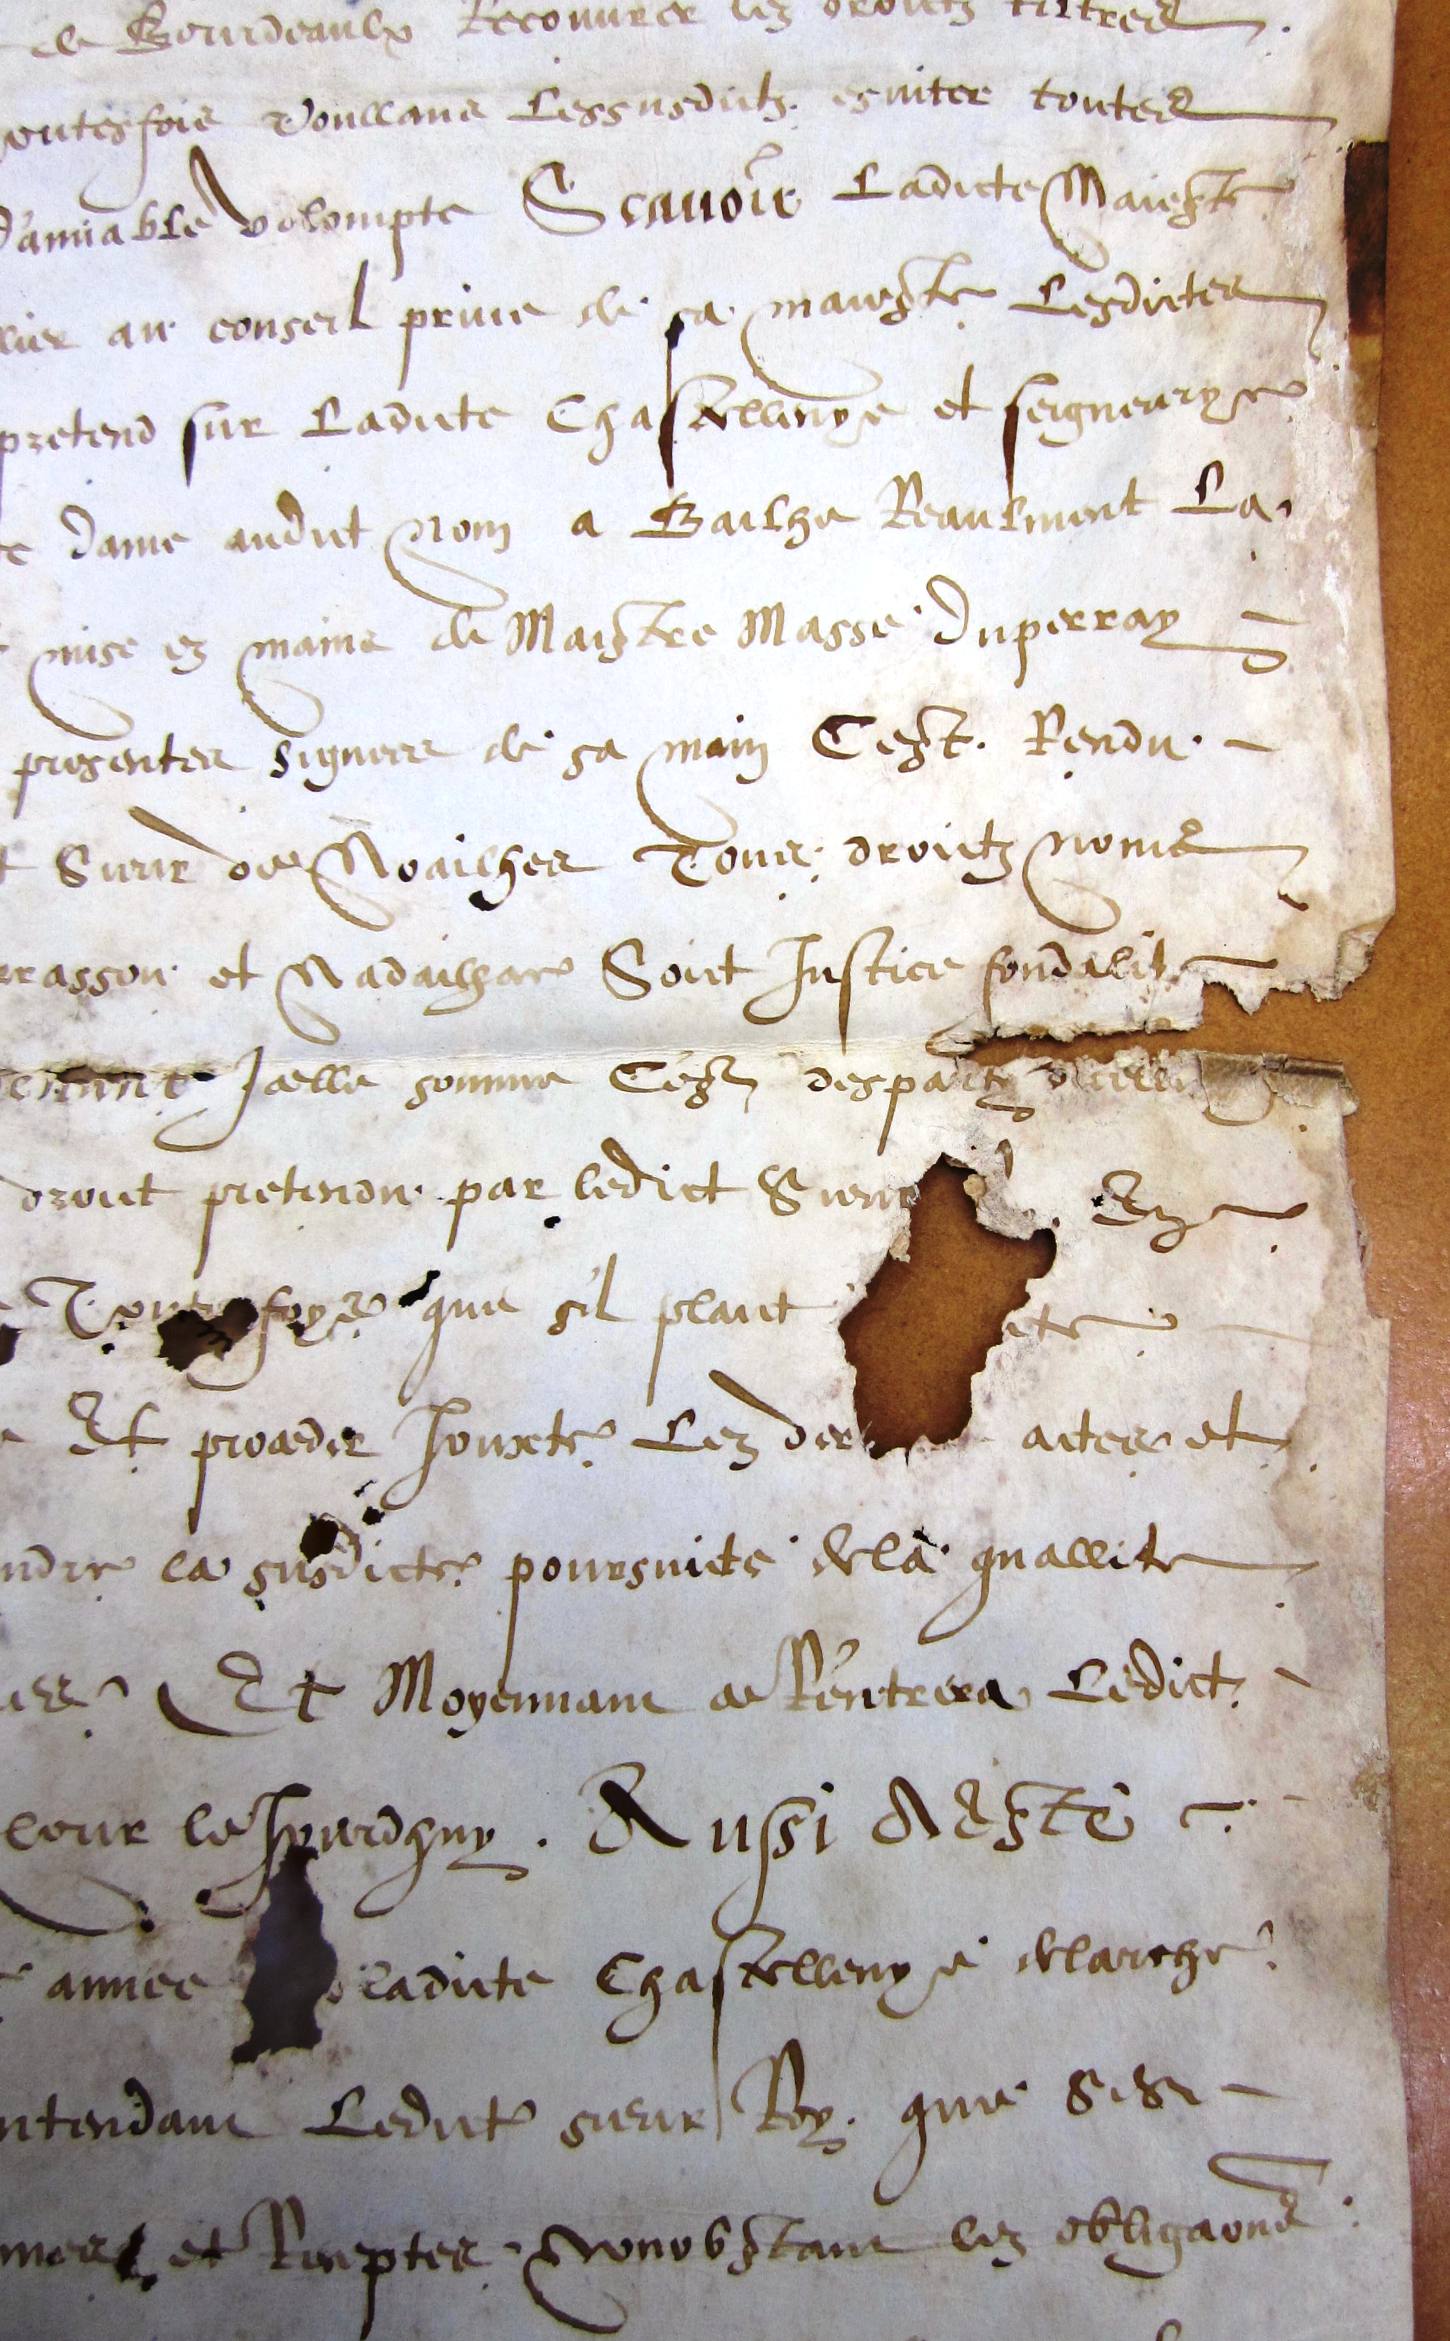 de Bourdeaulx Recouvrer lez droictz tiltres
toutesfois voullans Lessusdictz esviter toutes
d'amiable volompte Scavoir Ladicte Maieste
au conseil prive de sa maieste Lesdictes
pretend sur Ladicte Chastellenye et seigneurye
dame audict nom a Bailhe Reaulment La
mise ez mains de Maistre Masse Duperray
presentes signees de sa main C'est Rendu
Sieur de Noailhes Tous droictz noms
rrasson et Nadailhac Soict Justice fondalite
Icelle somme C'est despart
droict pretendu par ledict Sieur En
Toutesfoys que s'il plaict
Et proceder Jouxte Lez der actes et
ndre la susdicte poursuicte de la quallite
Et Moyennant ce R'entrera Ledict
leur le Jourdhuy. Aussi A Esté
annee ladicte Chastellenye de larche
ntendant Ledict sieur Roy que
et Receptes Nonobstant lez obligaons